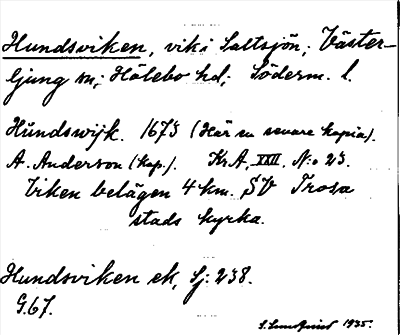 Hundsviken, vik i Saltsjön; Väster-
ljung sn; Hölebo hd; Söderm. l.
Hundswijk. 1673 (Här en senare kopia).
A. Anderson (kop.). Kr.A, XXII, N:o 23.
Viken belägen 4 km. SV Trosa
stads kyrka.
Hundsviken ek, Sj: 238.
G.67.
S. Lundqvist 1935.